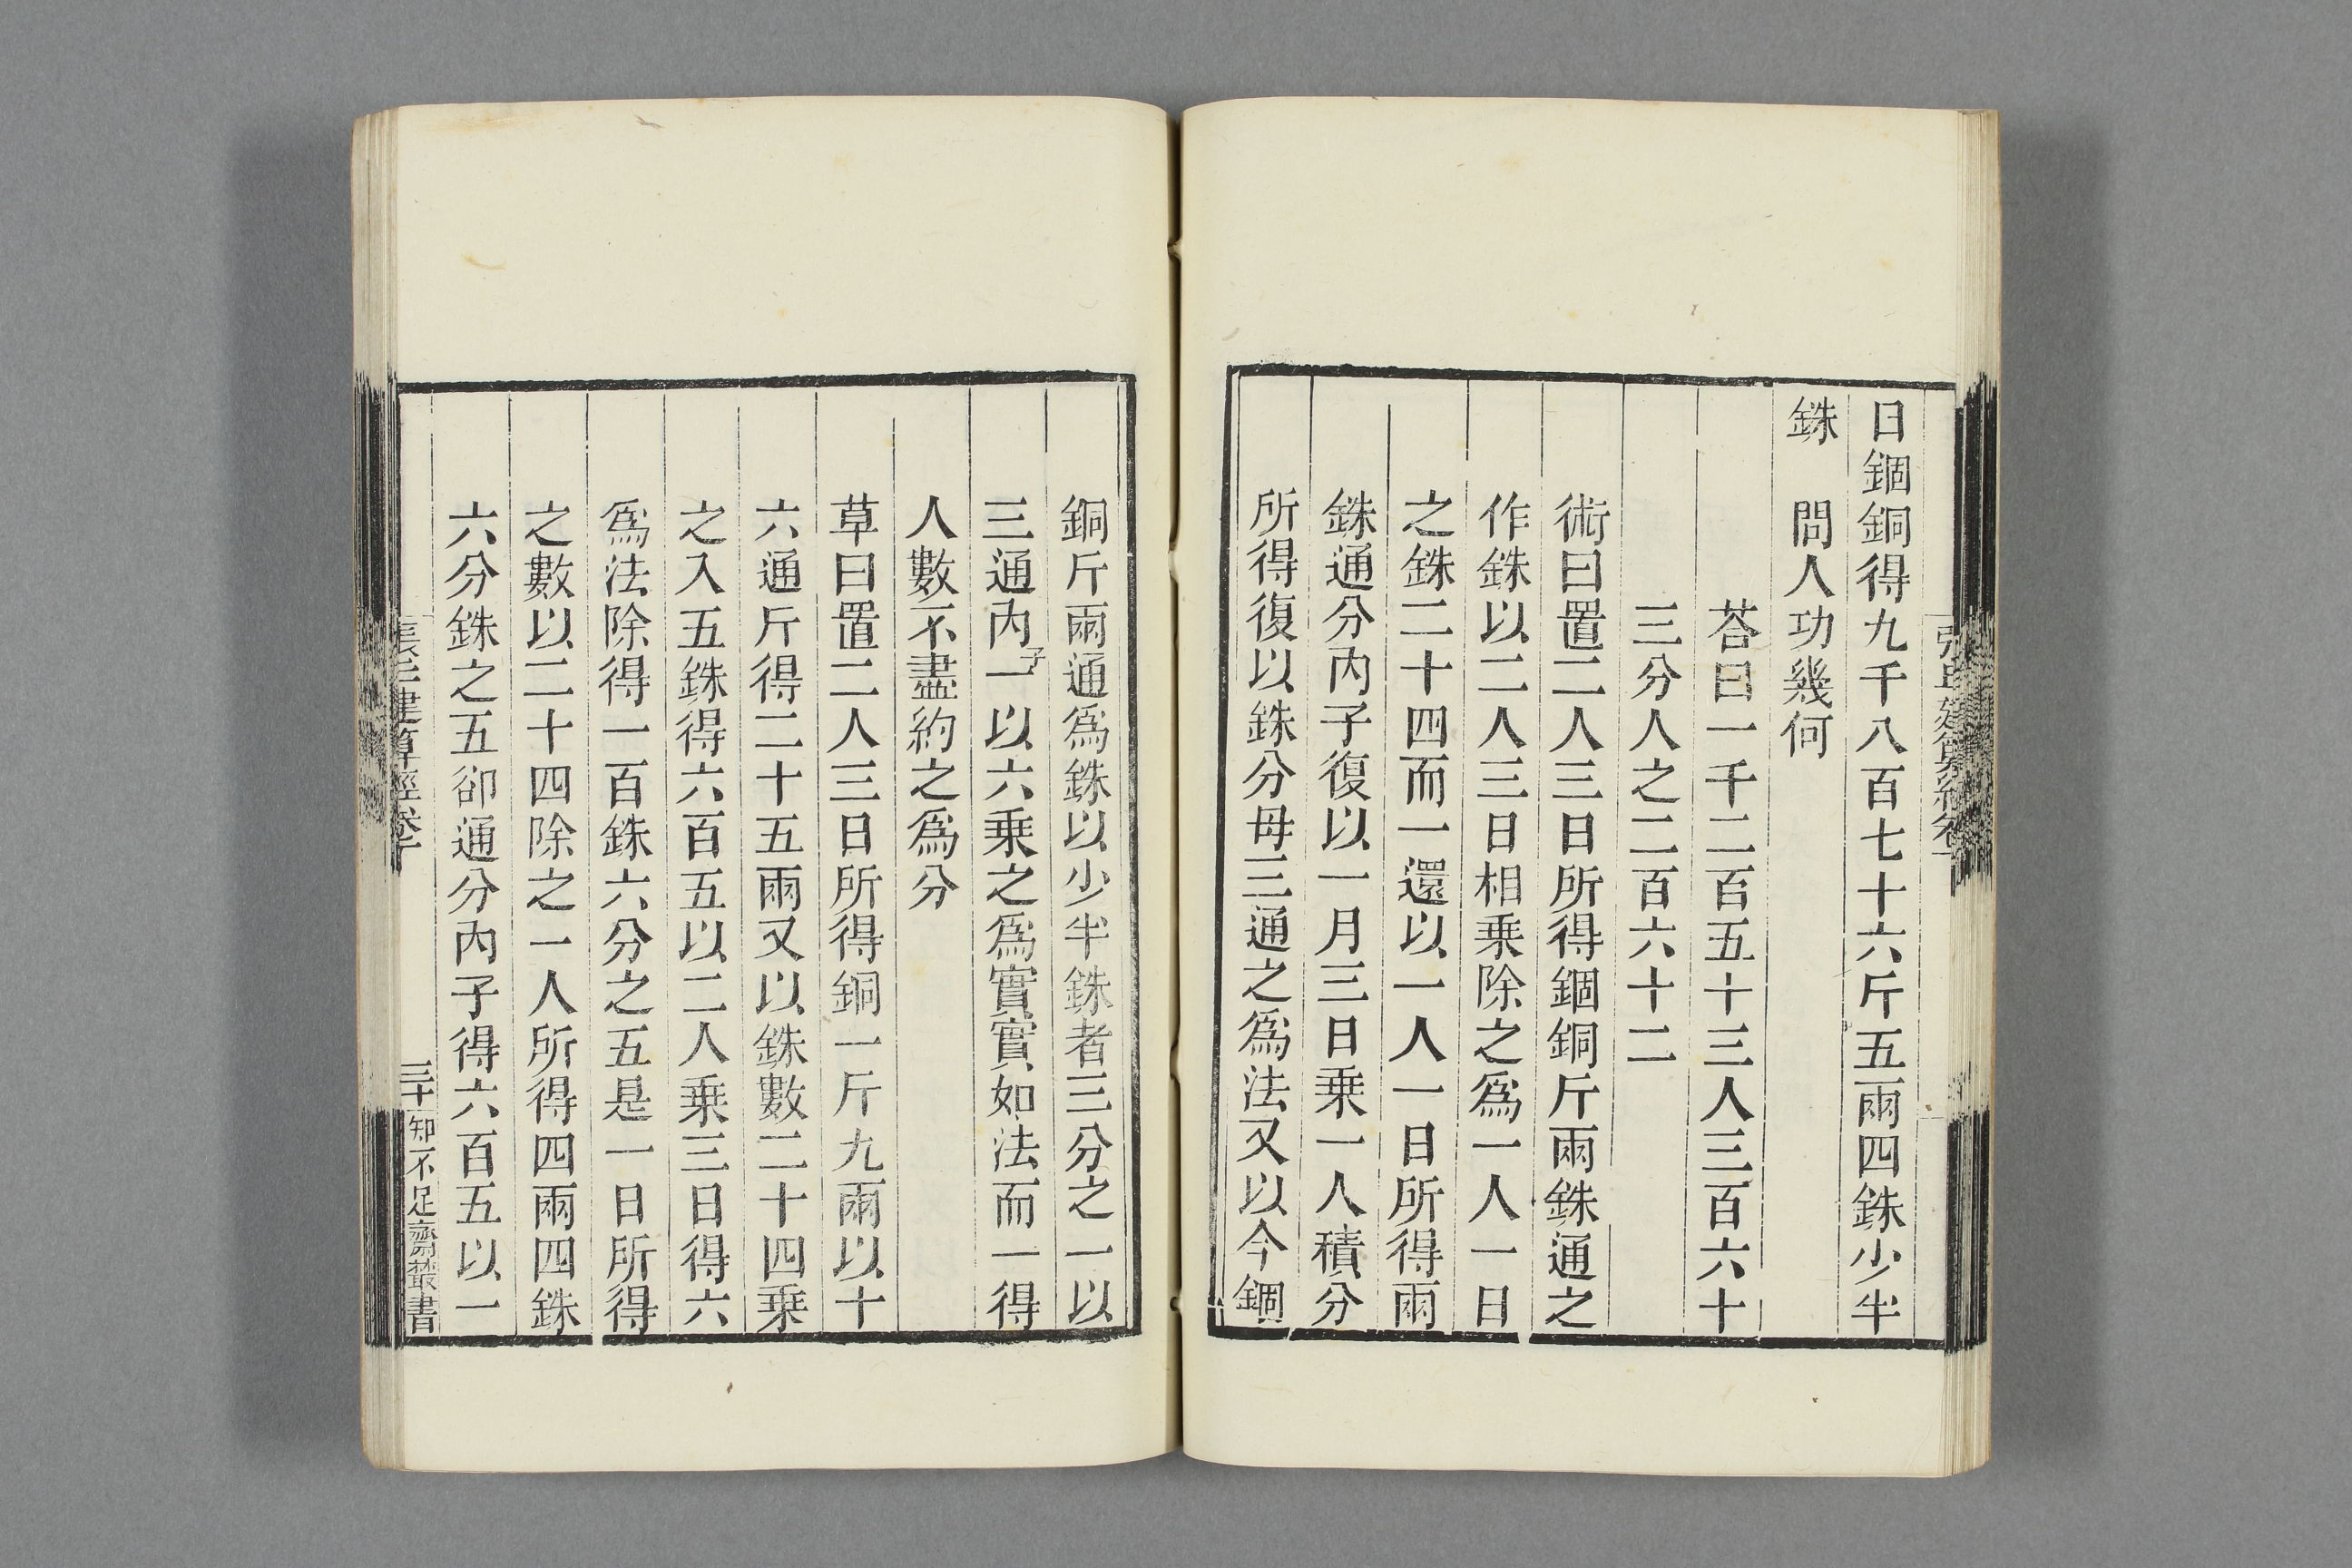 日錮銅得九千八百七十六斤五兩四銖少半
銖　問人功幾何
荅曰一千二百五十三人三百六十
三分人之二百六十二
術曰置二人三日所得錮銅斤兩銖通之
作銖以二人三日相乗除之爲一人一日
之銖二十四而一還以一人一日所得兩
銖通分內子復以一月三日乗一人積分
所得復以銖分母三通之爲法又以今錮
銅斤兩通爲銖以少半銖者三分之一以
三通內子一以六乗之爲實實如法而一得
人數不盡約之爲分
草曰置二人三日所得銅一斤九兩以十
六通斤得二十五兩又以銖數二十四乗
之入五銖得六百五以二人乗三日得六
爲法除得一百銖六分之五是一日所得
之數以二十四除之一人所得四兩四銖
六分銖之五卻通分內子得六百五以一
建算經卷
三十
知不足齋叢書